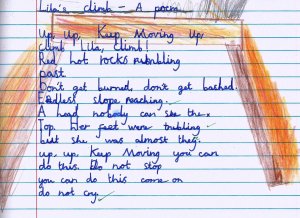 Lila's climb - A poem
Up, Up, Keep Moving Up,
climb! Lila, climb!
Red hot rocks rumbling
past.
Don't get burned, don't get bashed.
Endless slope reaching.
A head nobody can see the
Top. Her feet were trubling.
but she was almost they.
up, up, Keep Moving you can
do this. Do not stop
you can do this come on
do not cry.